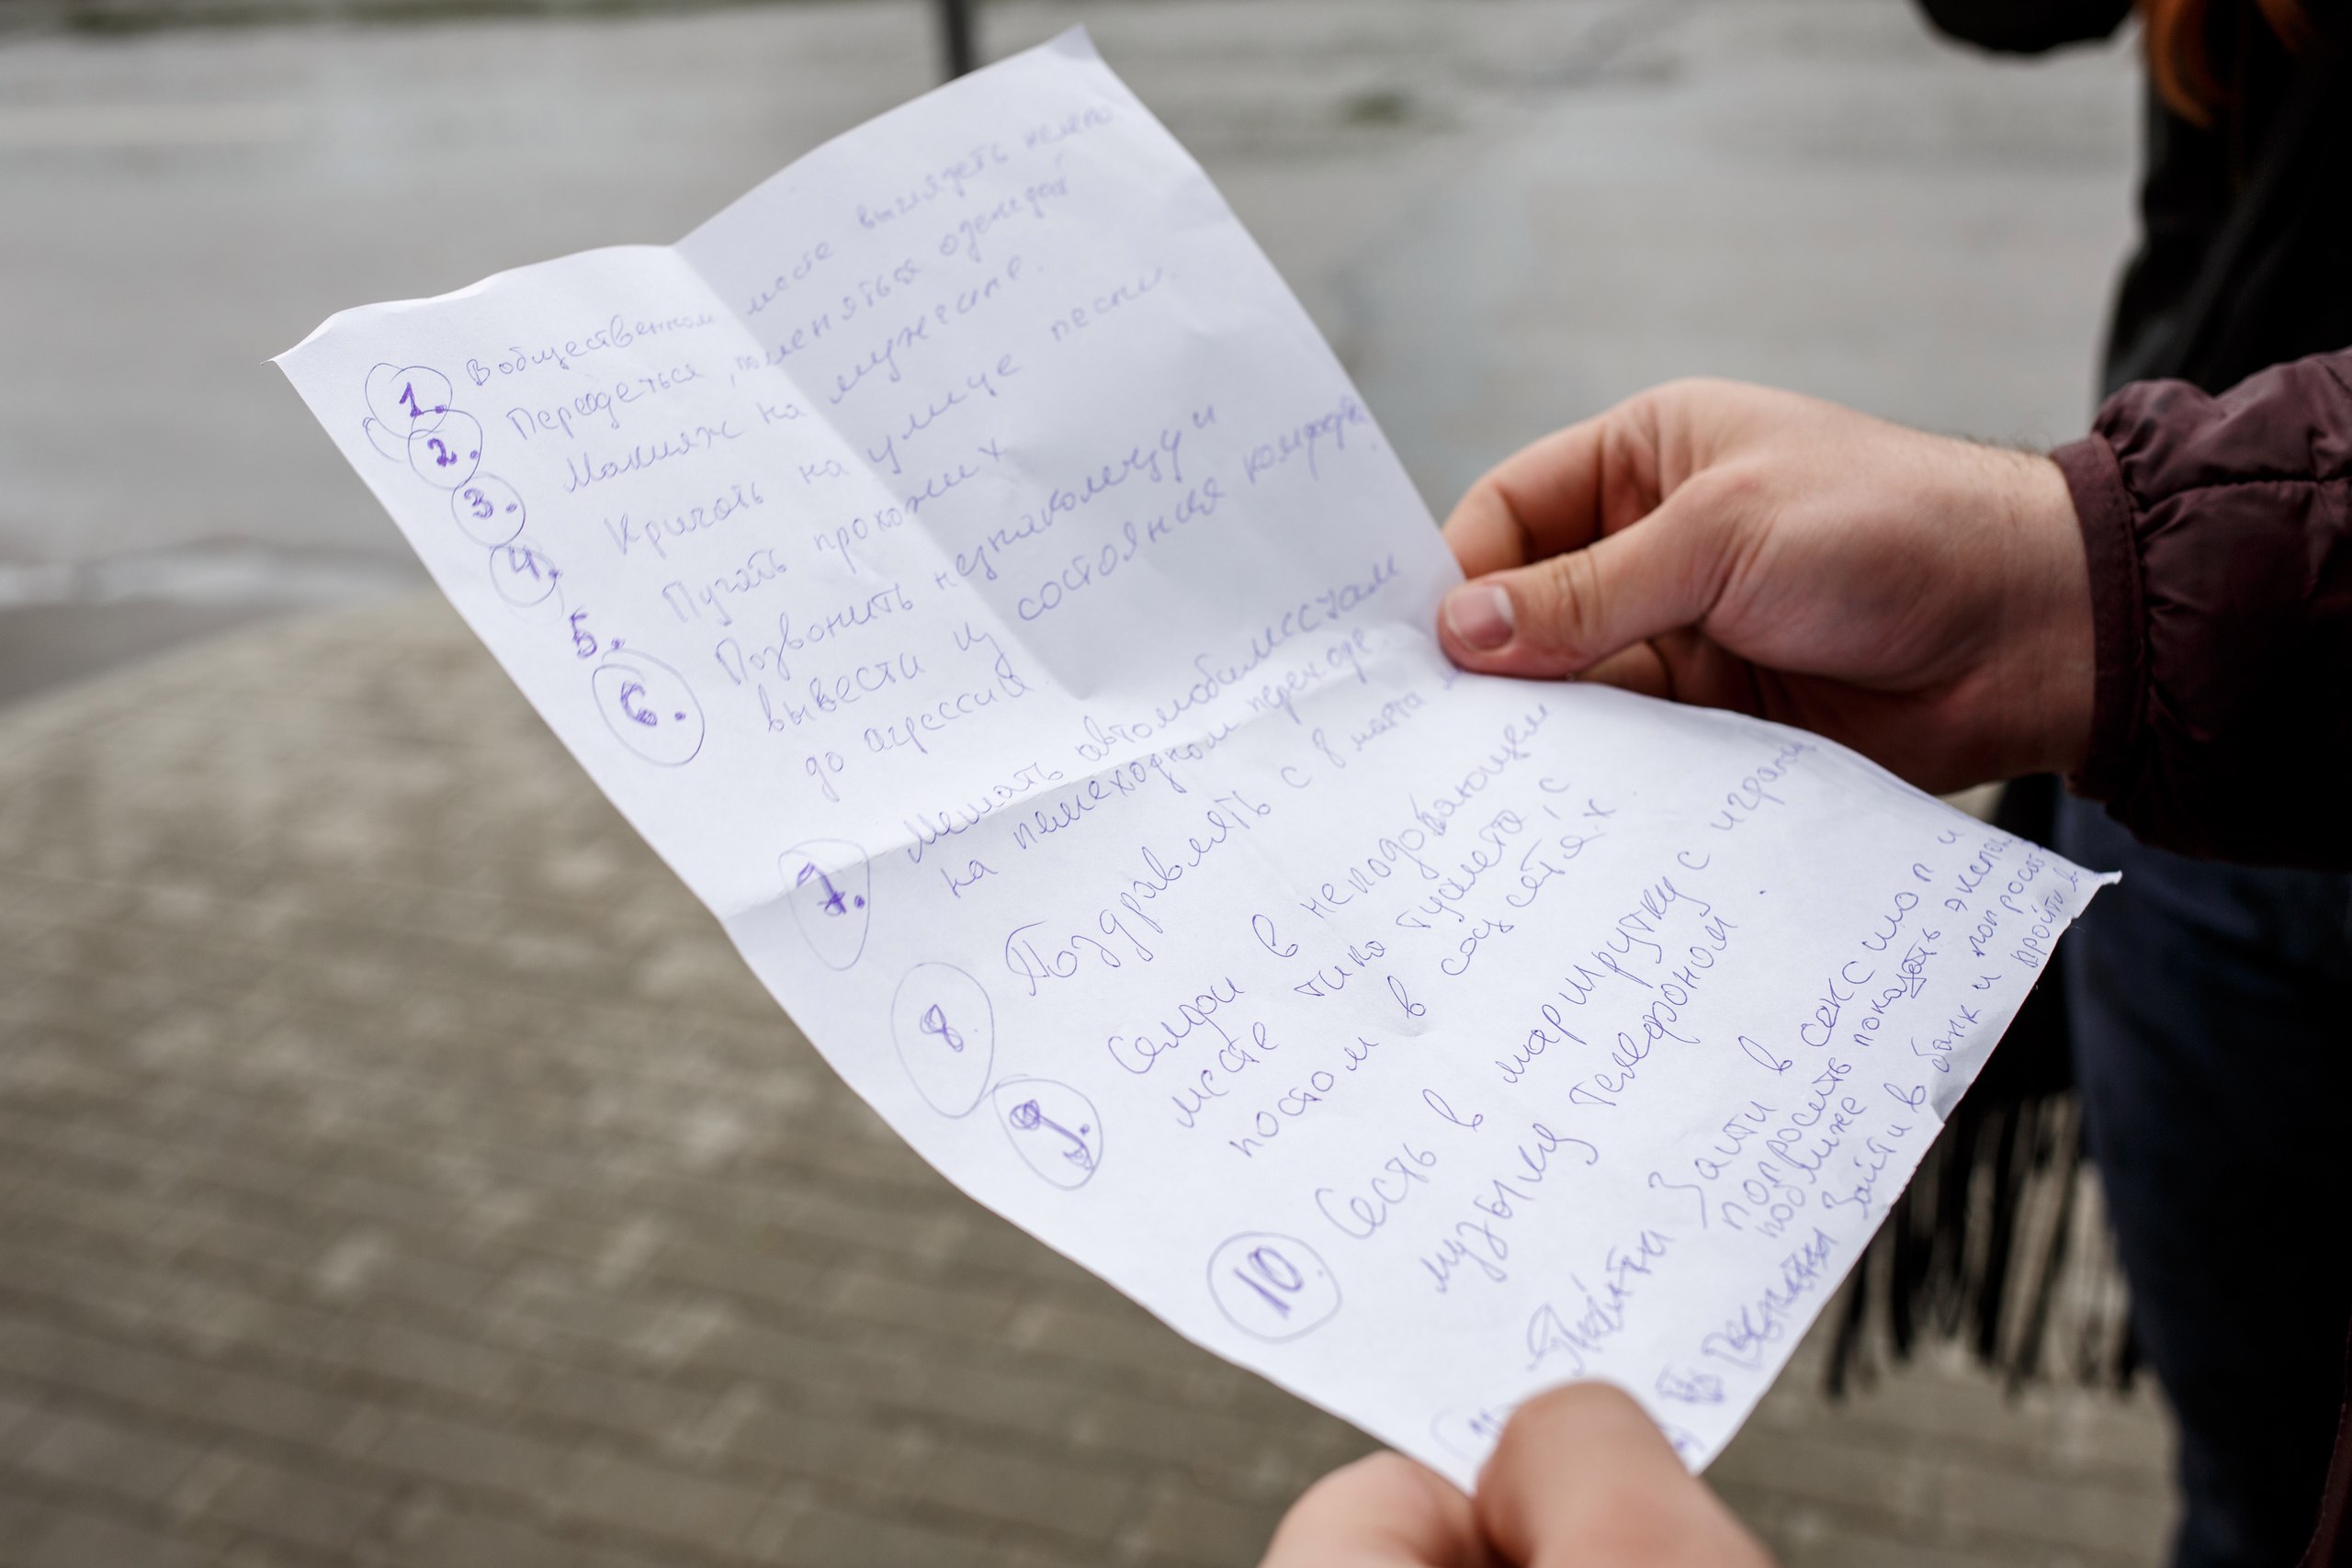 1. В общественном месте выглядеть нелепо
2. Переодеться, поменяться одеждой
3. Макияж на мужчине.
4. Кричать на улице песни.
5. Пугать прохожих
6. Позвонить незнакомцу и
вывести из состояния комфорта
до агрессии
7. Мешать автомобилистам
на пешеходном переходе.
8 Поздравлять с 8 марта
9. Селфи в неподобающем
месте типо туалета, с
постом в соц сетях.
10. Сесть в маршрутку с
музыку телефоном.
Зайти в секс шоп и
попросить показать
поближе
Зайти в банк и попросить
пройти в